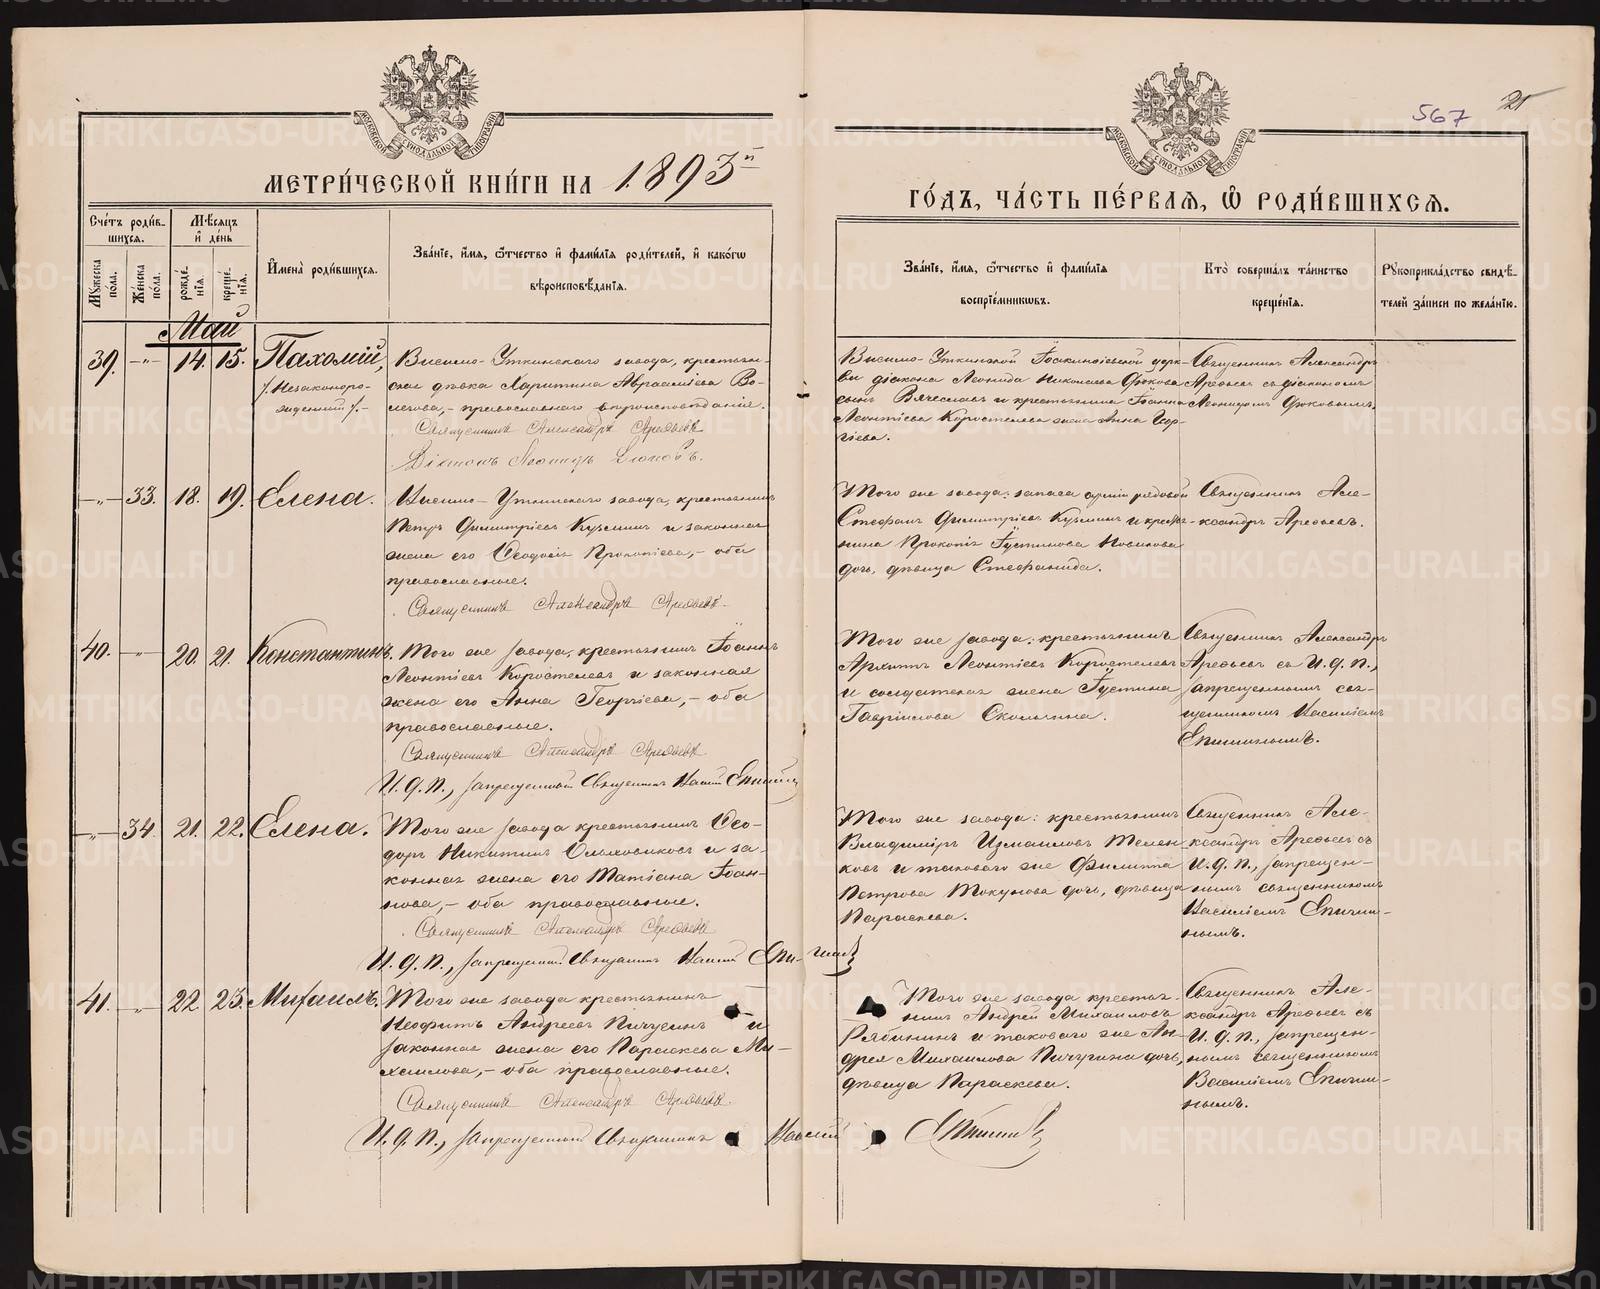 567 21
МОСКОВСКОЙ СѴНОДАЛЬНОЙ ТИПОГРАФІИ
МОСКОВСКОЙ СѴНОДАЛЬНОЙ ТИПОГРАФІИ
МЕТРИ́ЧЕСКОЙ КНИ́ГИ НА 1893й
ГО́ДЪ, ЧА́СТЬ ПЕ́РВАѦ, Ѿ РОДИ́ВШИХСѦ.
Сче́тъ роди́в-
шихся.
Му́жеска по́ла.
Же́нска по́ла.
Мѣ́сяцъ
и де́нь
рожде́-
нія.
креще́-
нія.
Имена̀ роди́вшихся.
Зва́ніе, и́мя, ѻ҆́тчество и фами́лія роди́телей, и како́гѡ
вѣроисповѣ́данія.
Зва́ніе, и́мя, ѻ҆́тчество и фами́лія
воспріе́мниковъ.
Кто̀ соверша́лъ та́инство
креще́нія.
Рꙋкоприкла́дство свидѣ́-
телей за́писи по жела́нію.
Май
39. -„- 14. 15. Пахомій,
/. Незаконоро-
жденный ./.-
Висимо-Уткинскаго завода, крестьян-
ская дѣвка Харитина Авраамiева Во-
легова,- православнаго вѣроисповѣданія.
Священникъ Александръ Арефьевъ
Діаконъ Леонидъ Дюковъ.
Висимо-Уткинской Іоакиміевской церк-
ви діакона Леонида Николаева Дюкова
сынъ Вячеславъ и крестьянина Іоанна
Леонтіева Коростелева жена Анна Геор-
гіева.
Священникъ Александръ
Арефьевъ съ діакономъ
Леонидомъ Дюковымъ.
-„- 33. 18. 19. Елена.
Висимо-Уткинскаго завода, крестьянинъ
Петръ Димитріевъ Кузминъ и законная
жена его Ѳеодосія Прокопіева,- оба
православные.
Священникъ Александръ Арефьевъ.
Того же завода: запаса арміи рядовой
Стефанъ Димитріевъ Кузминъ и крестья-
нина Прокопія Іустинова Новикова
дочь, дѣвица Стефанида.
Священникъ Але-
ксандръ Арефьевъ.
40. -„- 20. 21. Константинъ.
Того же завода, крестьянинъ Іоаннъ
Леонтіевъ Коростелевъ и законная
жена его Анна Георгіева,- оба
православные.
Священникъ Александръ Арефьевъ
И. д. п., запрещенный Священникъ Василій Епишинъ
Того же завода: крестьянинъ
Архипъ Леонтіевъ Коростелевъ
и солдатская жена Іустина
Гавріилова
Священникъ Александръ
Арефьевъ съ И. д. п.,
запрещеннымъ свя-
щенникомъ Василіемъ
Епишинымъ.
-„- 34. 21. 22. Елена.
Того же завода крестьянинъ Ѳео-
доръ Никитинъ Ольховиковъ и за-
конная жена его Татіана Іоан-
нова,- оба православные.
Священникъ Александръ Арефьевъ
И. д. п., запрещенный Священникъ Василій Епишинъ
Того же завода: крестьянинъ
Владиміръ Измаиловъ Телен-
ковъ и таковаго же Филиппа
Петрова Токунова дочь, дѣвица
Параскева.
Священникъ Але-
ксандръ Арефьевъ съ
И. д. п., запрещен-
нымъ священникомъ
Василіемъ Епиши-
нымъ.
41. -„- 22. 23. Михаилъ.
Того же завода крестьянинъ
Неофитъ Андреевъ Пичугинъ и
законная жена его Параскева Ми-
хаилова,- оба православные.
Священникъ Александръ Арефьевъ.
И. д. п., запрещенный Священникъ Василій Епишинъ
Того же завода крестья-
нинъ Андрей Михаиловъ
Рябининъ и таковаго же Ан-
дрея Михаилова Пичугина дочь,
дѣвица Параскева.
Священникъ Але-
ксандръ Арефьевъ съ
И. д. п., запрещен-
нымъ священникомъ
Василіемъ Епиши-
нымъ.
METRIKI.GASO-URAL.RU